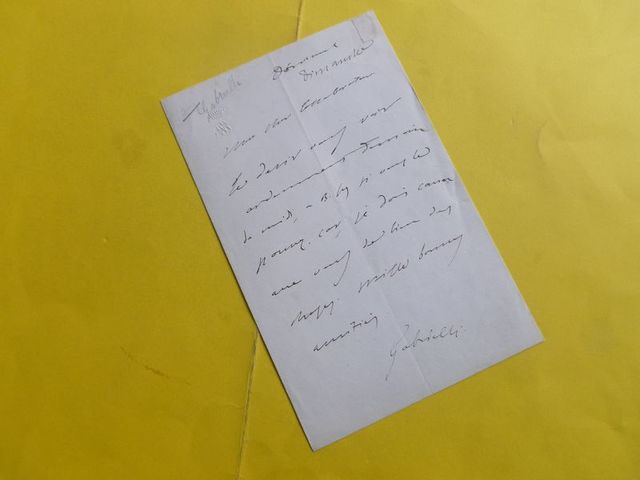 Gabrielli
Dimanche
Mon cher Collaborateur
Je désire vous voir
ardemment Demain
le midi, à si vous le
pouvez, car je dois causer
avec vous de bien des
choses. Mille bonnes
amitiés
Gabrielli.